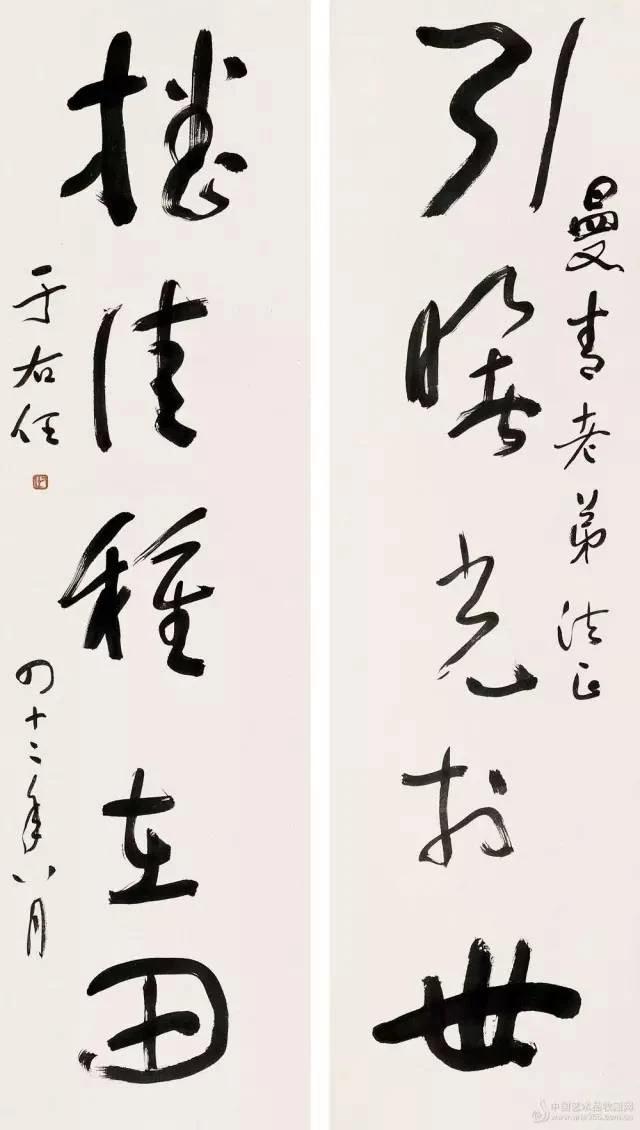 曼青老弟法正
引曙光於世
播佳種在田
四十二年八月
于右任
中国艺术品收藏网